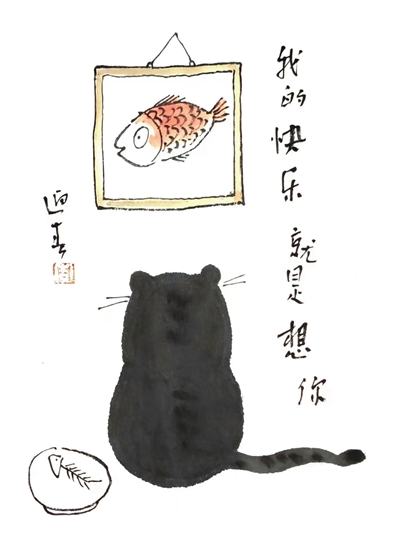 我的快乐就是想你
迎春